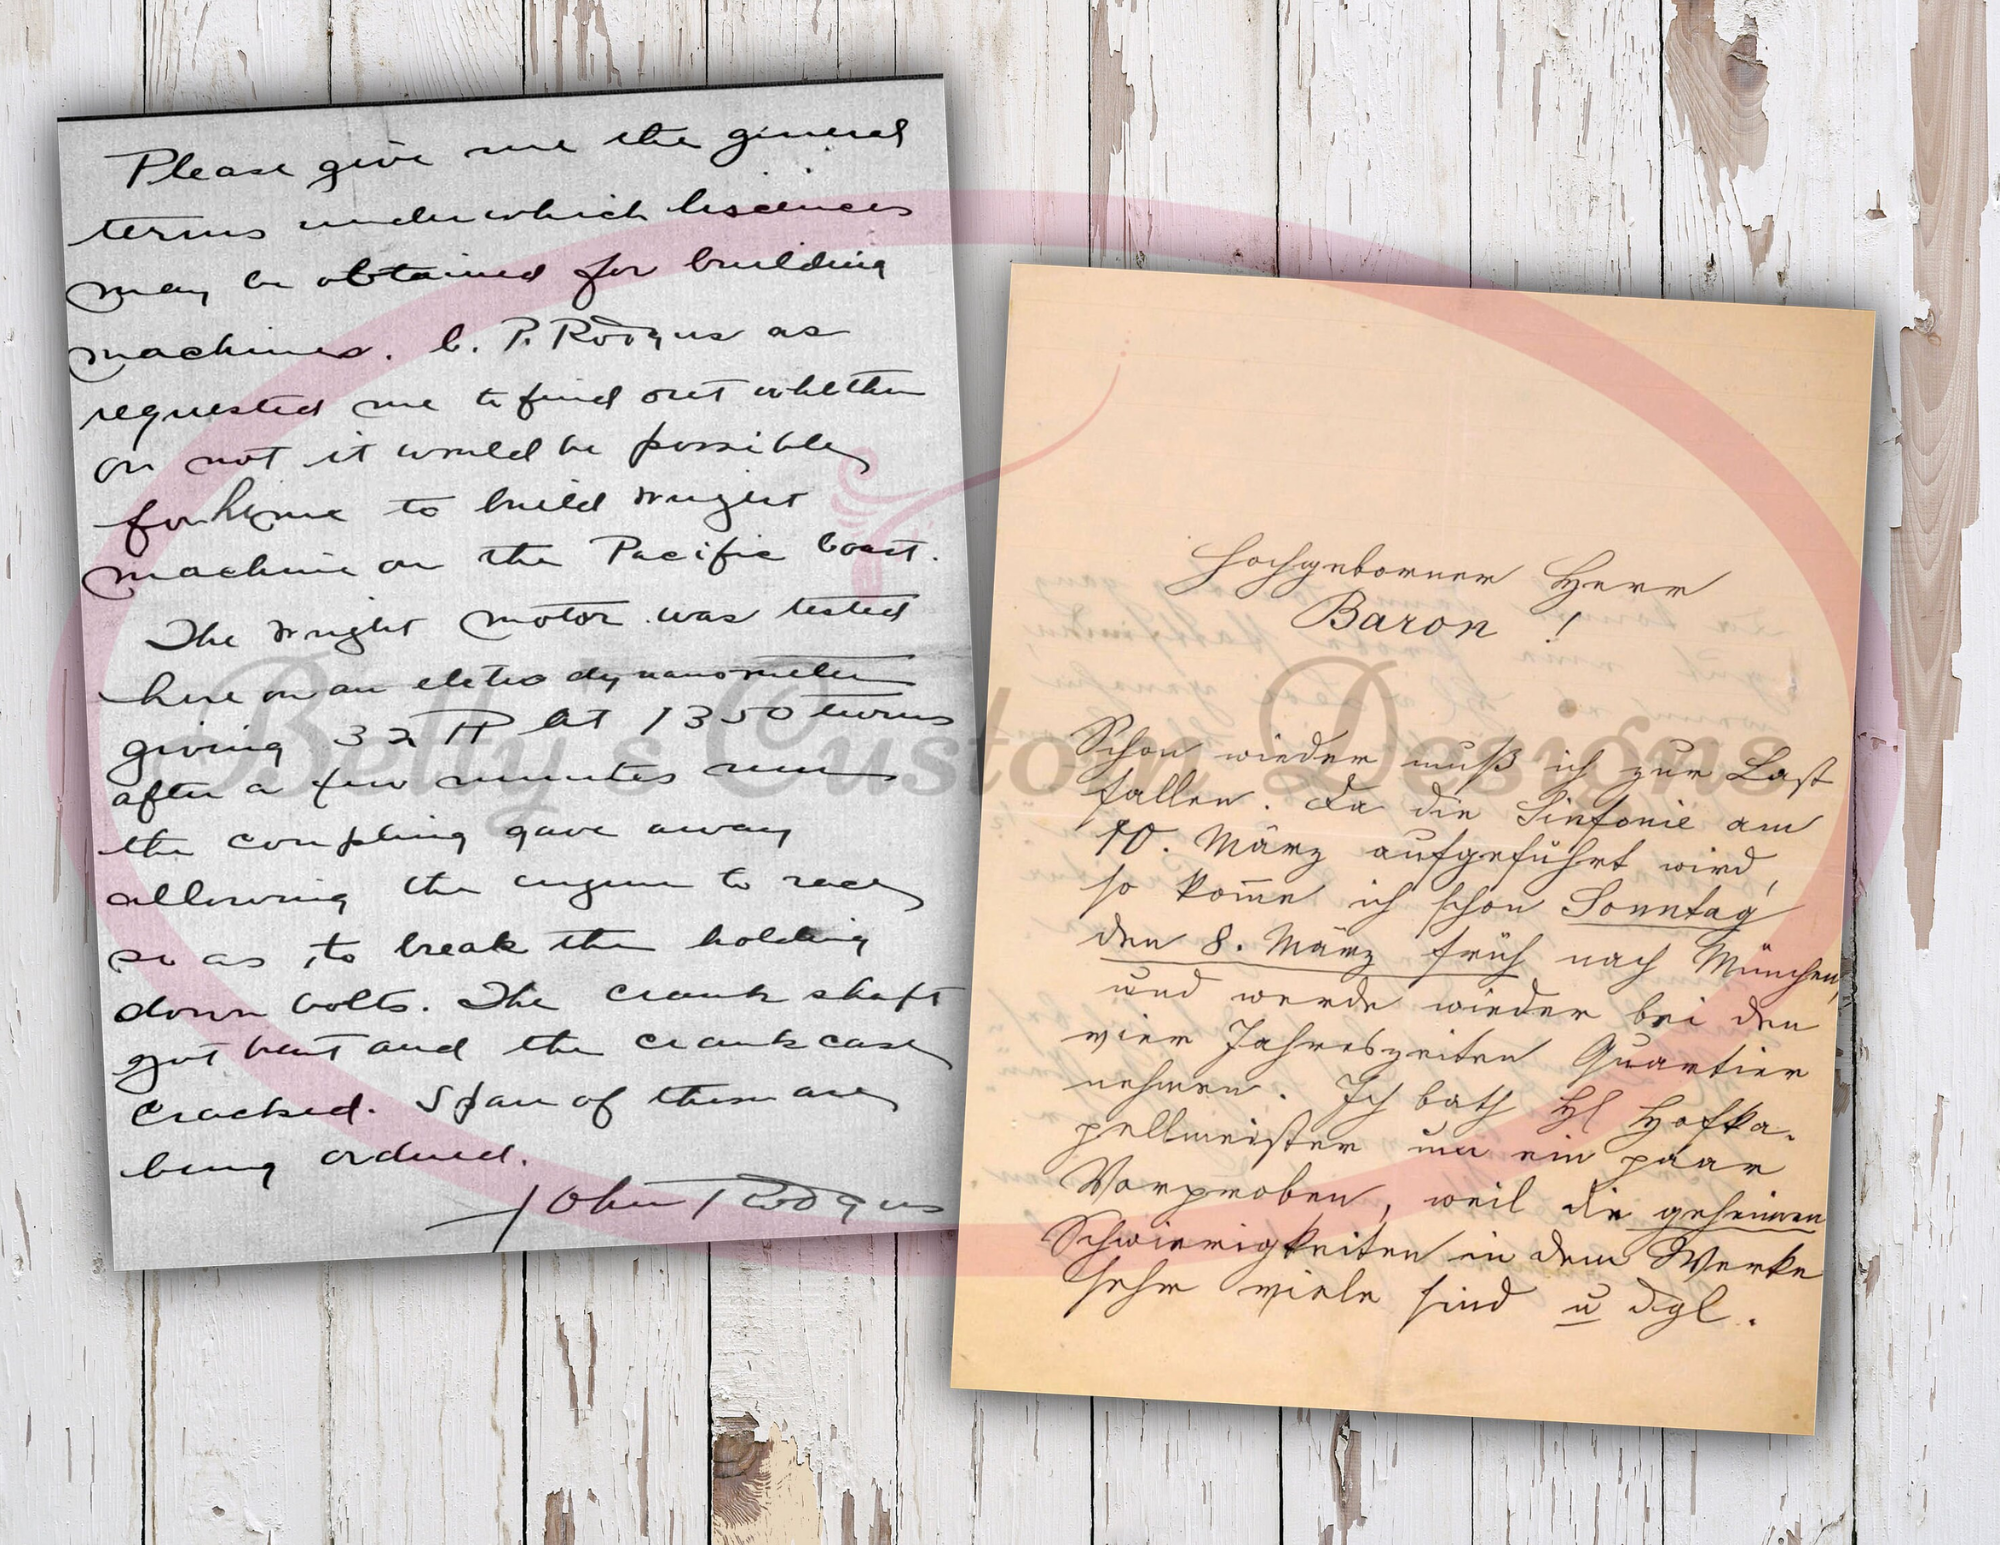 Please give me the general
terms under which liscences
may be obtained for building
machines. C. P. Rodgers as
requested me to find out whether
or not it would be possible
for hime to build Wright
machine on the Pacific Coast.
The Wright motor was tested
here on an eletro dynanometer
giving 32 H at 1350 turns
after a few minutes run
the coupling gave away
allowing the engine to race
so as to break the holding
down bolts. The crank shaft
got bent and the crank case
cracked. Span of them are
being ordered.
John Rodgers
Hochgeborner Herr
Baron !
Schon wieder muß ich zur Last
fallen. Da die Sinfonie am
10. März aufgeführt wird,
so kom̅e ich schon Sonntag
den 8. März früh nach München,
und werde wieder bei den
vier Jahreszeiten Quartier
nehmen. Ich bath H Hofka-
pellmeister um ein paar
Vorproben, weil die geheimen
Schwierigkeiten in dem Werke
sehr viele sind u dgl.
Betty's Custom Designs